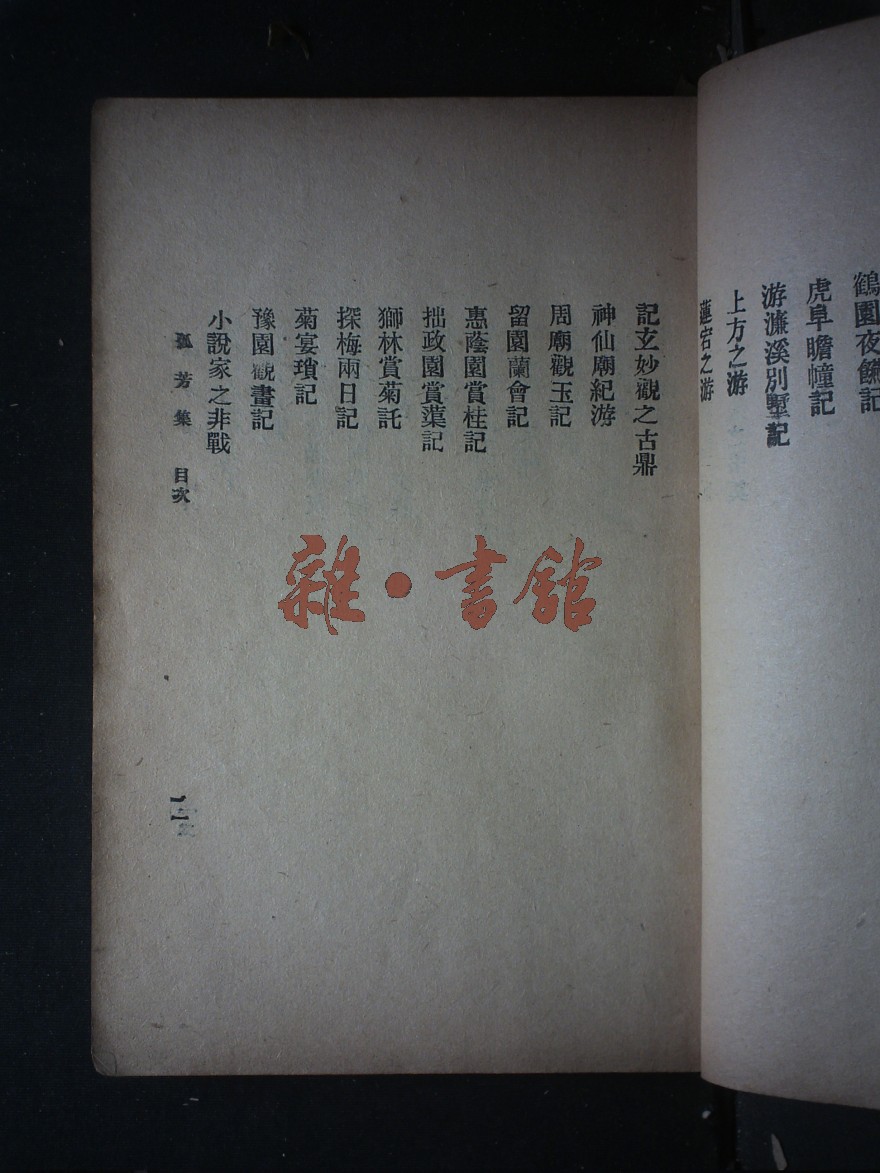 鶴園夜觴記
虎阜瞻幢記
游濂溪別墅記
上方之游
蓮宕之游
記玄妙觀之古鼎
神仙廟紀游
周廟觀玉記
留園蘭會記
惠蔭園賞桂記
拙政園賞蕖記
獅林賞菊記
探梅兩日記
菊宴瑣記
豫園觀書記
小說家之非戰
孤芳集 目次
二
雜·書館